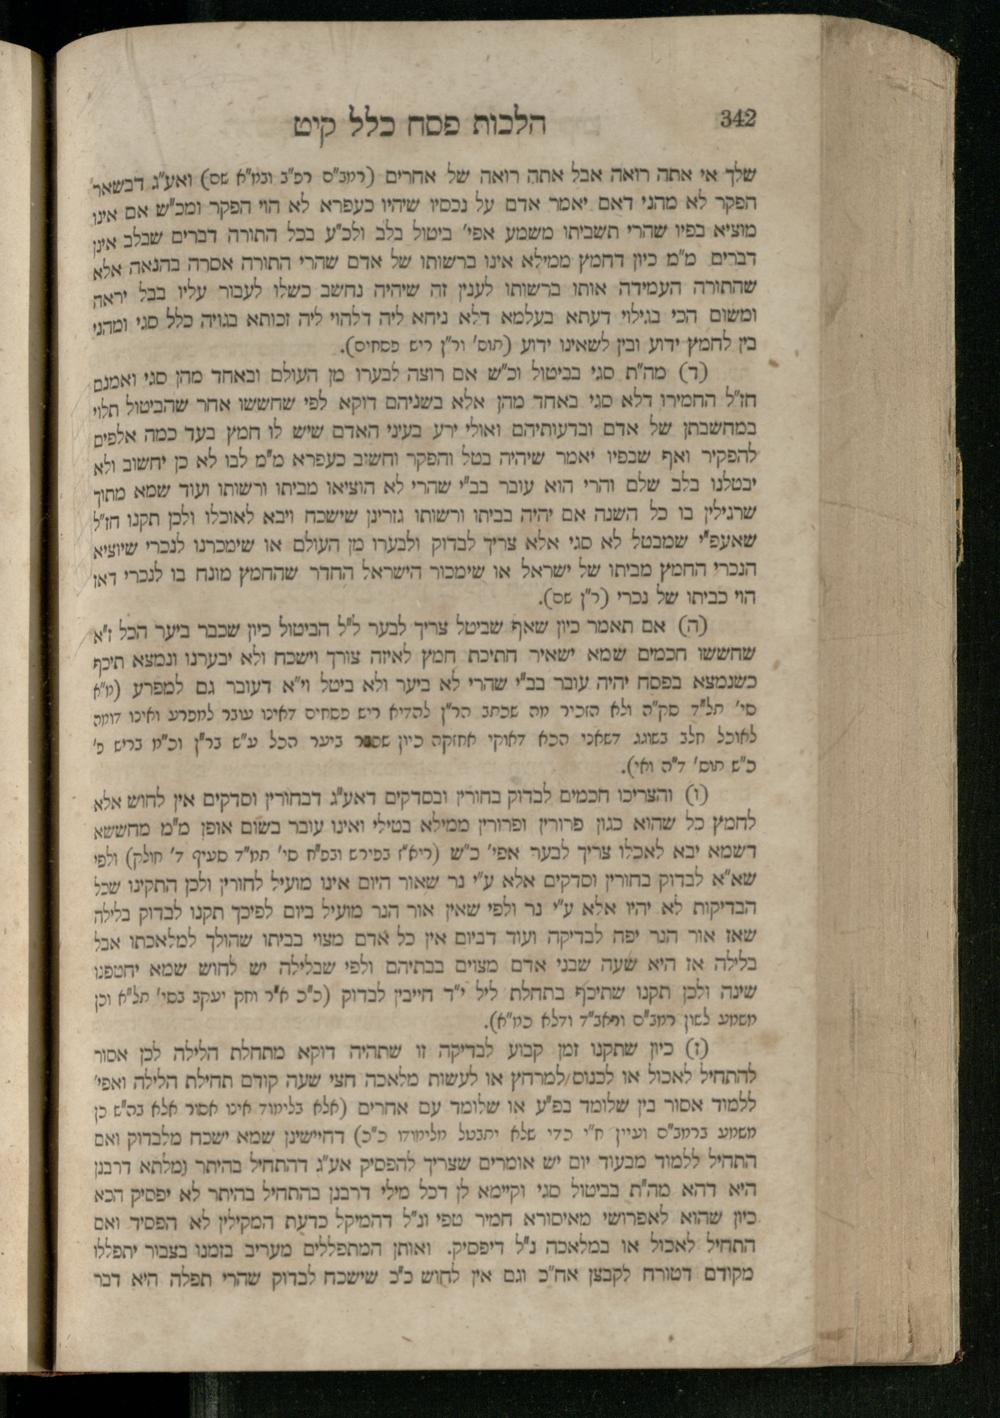 342
הלכות פסח כלל קיט
שלך אי אתה רואה אבל אתה רואה של אחרים (רמב"ם רפ"ב ובמ"א שם) ואע"ג דבשאר
הפקר לא מהני דאם יאמר אדם על נכסיו שיהיו כעפרא לא הוי הפקר ומכ"ש אם אינו
מוציא בפיו שהרי תשביתו משמע אפי' ביטול בלב ולכ"ע בכל התורה דברים שבלב אינן
דברים מ"מ כיון דחמץ ממילא אינו ברשותו של אדם שהרי התורה אסרה בהנאה אלא
שהתורה העמידה אותו ברשותו לענין זה שיהיה נחשב כשלו לעבור עליו בבל יראה
ומשום הכי בגילוי דעתא בעלמא דלא ניחא ליה דלהוי ליה זכותא בגויה כלל סגי ומהני
בין לחמץ ידוע ובין לשאינו ידוע (תוס' ור"ן ריש פסחים).
(ד) מה"ת סגי בביטול וכ"ש אם רוצה לבערו מן העולם ובאחד מהן סגי ואמנם
חז"ל החמירו דלא סגי באחד מהן אלא בשניהם דוקא לפי שחששו אחר שהביטול תלוי
במחשבתן של אדם ובדעותיהם ואולי ירע בעיני האדם שיש לו חמץ בעד כמה אלפים
להפקיר ואף שבפיו יאמר שיהיה בטל והפקר וחשיב כעפרא מ"מ לבו לא כן יחשוב ולא
יבטלנו בלב שלם והרי הוא עובר בב"י שהרי לא הוציאו מביתו ורשותו ועוד שמא מתוך
שרגילין בו כל השנה אם יהיה בביתו ורשותו גזרינן שישכח ויבא לאוכלו ולכן תקנו חז"ל
שאעפ"י שמבטל לא סגי אלא צריך לבדוק ולבערו מן העולם או שימכרנו לנכרי שיוציא
הנכרי החמץ מביתו של ישראל או שימכור הישראל החדר שהחמץ מונח בו לנכרי דאז
הוי כביתו של נכרי (ר"ן שם).
(ה) אם תאמר כיון שאף שביטל צריך לבער ל"ל הביטול כיון שכבר ביער הכל ז"א
שחששו חכמים שמא ישאיר חתיכת חמץ לאיזה צורך וישכח ולא יבערנו ונמצא תיכף
כשנמצא בפסח יהיה עובר בב"י שהרי לא ביער ולא ביטל וי"א דעובר גם למפרע (מ"א
סי' תל"ד סק"ה ולא הזכיר מה שכתב הר"ן להדיא ריש פסחים דאינו עובר למפרע ואינו דומה
לאוכל חלב בשוגג דשאני הכא דאוקי אחזקה כיון שסבר ביער הכל ע"ש בר"ן וכ"מ בריש פ'
כ"ש תוס' ד"ה ואי).
(ו) והצריכו חכמים לבדוק בחורין ובסדקים דאע"ג דבחורין וסדקים אין לחוש אלא
לחמץ כל שהוא כגון פרורין ופרורין ממילא בטילי ואינו עובר בשום אופן מ"מ מחששא
דשמא יבא לאכלו צריך לבער אפי' כ"ש (ריא"ז בפירש ובפ"ח סי' תמ"ד סעיף ד' חולק) ולפי
שא"א לבדוק בחורין וסדקים אלא ע"י נר שאור היום אינו מועיל לחורין ולכן התקינו שכל
הבדיקות לא יהיו אלא ע"י נר ולפי שאין אור הנר מועיל ביום לפיכך תקנו לבדוק בלילה
שאז אור הנר יפה לבדיקה ועוד דביום אין כל אדם מצוי בביתו שהולך למלאכתו אבל
בלילה אז היא שעה שבני אדם מצוים בבתיהם ולפי שבלילה יש לחוש שמא יחטפנו
שינה ולכן תקנו שתיכף בתחלת ליל י"ד חייבין לבדוק (כ"כ א"ר וחק יעקב בסי' תל"א וכן
משמע לשון רמב"ם וראב"ד ודלא כמ"א).
(ז) כיון שתקנו זמן קבוע לבדיקה זו שתהיה דוקא מתחלת הלילה לכן אסור
להתחיל לאכול או לכנוס למרחץ או לעשות מלאכה חצי שעה קודם תחילת הלילה ואפי'
ללמוד אסור בין שלומד בפ"ע או שלומד עם אחרים (אלא בלימוד אינו אסור אלא בה"ש כן
משמע ברמב"ם ועיין ח"י כדי שלא יתבטל מלימודו כ"כ) דחיישינן שמא ישכח מלבדוק ואם
התחיל ללמוד מבעוד יום יש אומרים שצריך להפסיק אע"ג דהתחיל בהיתר ומלתא דרבנן
היא דהא מה"ת בביטול סגי וקיימא לן דכל מילי דרבנן בהתחיל בהיתר לא יפסיק הכא
כיון שהוא לאפרושי מאיסורא חמיר טפי ונ"ל דהמיקל כדעת המקילין לא הפסיד ואם
התחיל לאכול או במלאכה נ"ל דיפסיק. ואותן המתפללים מעריב בזמנו בצבור יתפללו
מקודם דטורח לקבצן אח"כ וגם אין לחוש כ"כ שישכח לבדוק שהרי תפלה היא דבר